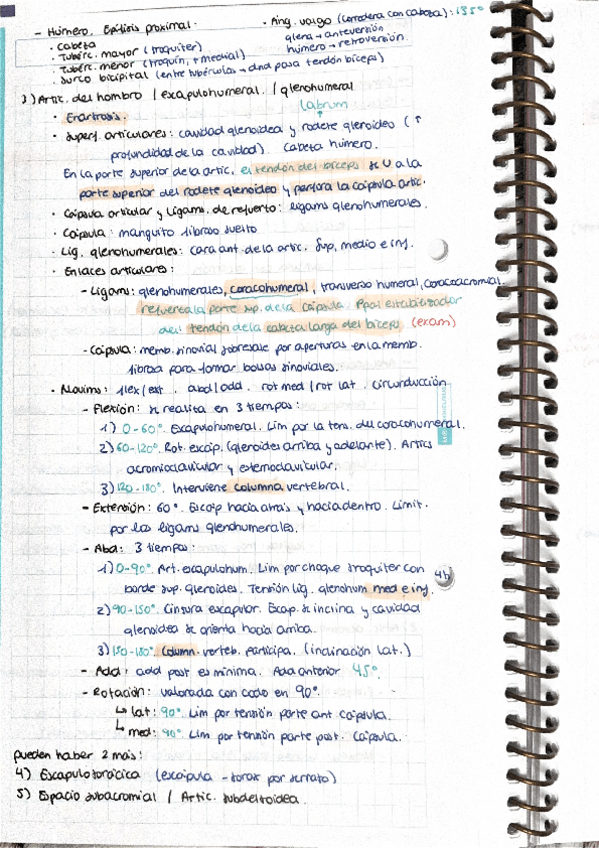 - Húmero. Epífisis proximal:
· cabeza
· Tubérc. mayor (troquíter)
· Tubérc. menor (troquín, + medial)
· surco bicipital (entre tubérculos → dnd pasa tendón bíceps)
· Ang. valgo (corredera con cabeza): 135º
glena → anteversión
húmero → retroversión.
3) Artic. del hombro / escapulohumeral / glenohumeral
· Enartrosis.
labrum
· Superf. articulares: cavidad glenoidea y rodete glenoideo (↑
profundidad de la cavidad). Cabeza húmero.
En la parte superior de la artic. el tendón del bíceps se U a la
parte superior del rodete glenoideo y perfora la cápsula artic.
· Cápsula articular y ligams. de refuerzo: ligams glenohumerales.
· Cápsula: manguito fibroso suelto
· Lig. glenohumerales: cara ant. de la artic. Sup, medio e inf.
· Enlaces articulares:
- Ligams: glenohumerales, coracohumeral, transverso humeral, coracoacromial.
refuerza la parte sup. de la cápsula. Ppal estabilizador
del tendón de la cabeza larga del bíceps (exam)
- Cápsula: memb. sinovial sobresale por aperturas en la memb.
fibrosa para formar bolsas sinoviales.
· Movims: flex/ext. abd/add. rot med/rot lat. circunducción
- Flexión: se realiza en 3 tiempos:
1) 0-60º. Escapulohumeral. Lim por la tens. del coracohumeral.
2) 60-120º. Rot. escáp. (glenoides arriba y adelante). Artics
acromioclavicular y esternoclavicular.
3) 120-180º. Interviene columna vertebral.
- Extensión: 60º. Escáp hacia atrás y hacia dentro. Limit.
por los ligams glenohumerales.
- Abd: 3 tiempos:
1) 0-90º. Art. escapulohum. Lim por choque troquíter con
borde sup. glenoides. Tensión lig. glenohum med e inf.
2) 90-150º. Cintura escapular. Escap. se inclina y cavidad
glenoidea se orienta hacia arriba.
3) 150-180º. Column. verteb. participa. (inclinación lat.)
- Add: add post es mínima. Add anterior 45º.
- Rotación: valorada con codo en 90º.
↳ lat: 90º. Lim por tensión parte ant cápsula.
↳ med: 90º. Lim por tensión parte post. cápsula.
pueden haber 2 más:
4) Escapulotorácica (escápula - torax por serrato)
5) Espacio subacromial / Artic. subdeltoidea.